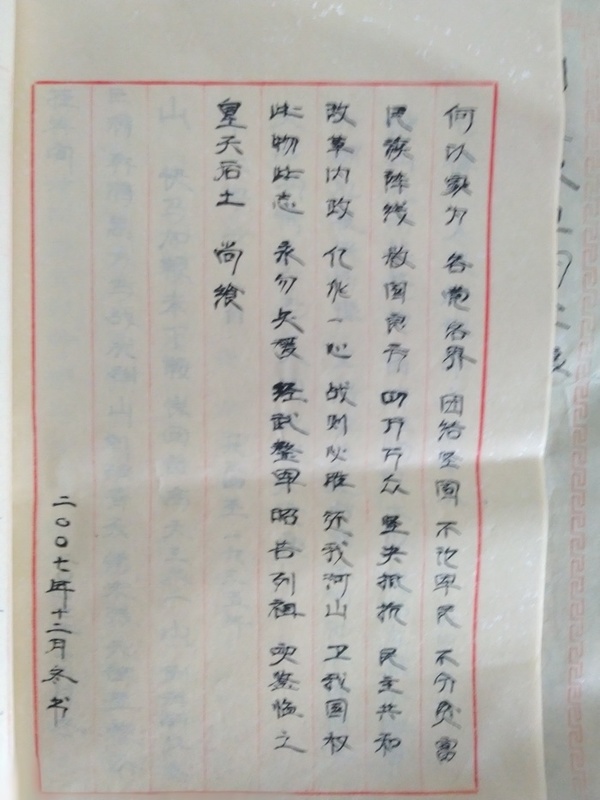 何以家为 各党各界 团结坚固 不论军民 不分贫富
民族阵线 救国良方 四万万众 坚决抵抗 民主共和
改革内政 亿兆一心 战则必胜 还我河山 卫我国权
此物此志 永勿矢谖 经武整军 昭告列祖 实鉴临之
皇天后土 尚飨
二〇〇七年十二月冬书